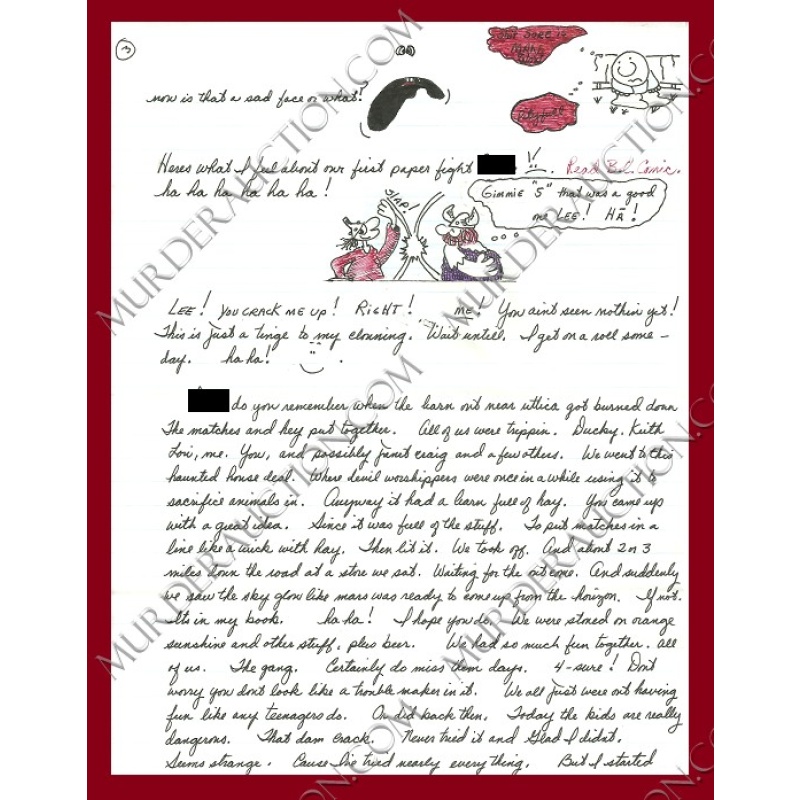 3
now is that a sad face or what?
Heres what I feel about our first paper fight . Read B.C. Comic.
ha ha ha ha ha ha!
SLAP!
Gimmie "5" that was a good
one LEE! HA!
LEE! YOU CRACK ME UP! RIGHT! ME! You aint seen nothin yet!
This is just a tinge to my clowning. Wait untill. I get on a roll some-
day. ha ha!
do you remember when the barn out near utica got burned down
The matches and hey put together. All of us were trippin. Ducky. Keith
Lori, me. You, and possibly janit craig and a few others. We went to this
haunted house deal. Where devil worshippers were once in a while using it to
sacrifice animals in. Anyway it had a barn full of hay. You came up
with a great idea. Since it was full of the stuff. To put matches in a
line like a wick with hay. Then lit it. We took off. And about 2 or 3
miles down the road at a store we sat. Waiting for the outcome. And suddenly
we saw the sky glow like mars was ready to come up from the horizon. If not.
Its in my book. ha ha! I hope you do. We were stoned on orange
sunshine and other stuff, plus beer. We had so much fun together. all
of us. The gang. Certainly do miss them days. 4-sure! Dont
worry you dont look like a trouble maker in it. We all just were out having
fun like any teenagers do. Or did back then. Today the kids are really
dangerous. That dam crack. Never tried it and Glad I didnt.
Seems strange. Cause I've tried nearly everything. But I started
MURDERAUCTION.COM
MURDERAUCTION.COM
MURDERAUCTION.COM
MURDERAUCTION.COM